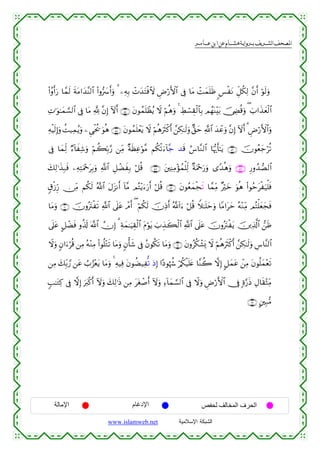 المصحف الشريف برواية هشام عن ابن عامر
وَلَوْ أَنَّ لِكُلِّ نَفْسٍ ظَلَمَتْ مَا فِي ٱلْأَرْضِ لَٱفْتَدَتْ بِهِۦ وَأَسَرُّوا۟ ٱلنَّدَامَةَ لَمَّا رَأَوُا۟
ٱلْعَذَابَ وَقُضِيَ بَيْنَهُم بِٱلْقِسْطِ وَهُمْ لَا يُظْلَمُونَ أَلَآ إِنَّ لِلَّهِ مَا فِي ٱلسَّمَٰوَٰتِ
وَٱلْأَرْضِ أَلَآ إِنَّ وَعْدَ ٱللَّهِ حَقٌّ وَلَٰكِنَّ أَكْثَرَهُمْ لَا يَعْلَمُونَ هُوَ يُحْيِۦ وَيُمِيتُ وَإِلَيْهِ
تُرْجَعُونَ يَٰٓأَيُّهَا ٱلنَّاسُ قَد جَّآءَتْكُم مَّوْعِظَةٌ مِّن رَّبِّكُمْ وَشِفَآءٌ لِّمَا فِي
ٱلصُّدُورِ وَهُدًى وَرَحْمَةٌ لِّلْمُؤْمِنِينَ قُلْ بِفَضْلِ ٱللَّهِ وَبِرَحْمَتِهِۦ فَبِذَٰلِكَ
فَلْيَفْرَحُوا۟ هُوَ خَيْرٌ مِّمَّا تَجْمَعُونَ قُلْ أَرَءَيْتُم مَّآ أَنزَلَ ٱللَّهُ لَكُم مِّن رِّزْقٍ
فَجَعَلْتُم مِّنْهُ حَرَامًا وَحَلَٰلًا قُلْ ءَآللَّهُ أَذِنَ لَكُمْ أَمْ عَلَى ٱللَّهِ تَفْتَرُونَ وَمَا
ظَنُّ ٱلَّذِينَ يَفْتَرُونَ عَلَى ٱللَّهِ ٱلْكَذِبَ يَوْمَ ٱلْقِيَٰمَةِ إِنَّ ٱللَّهَ لَذُو فَضْلٍ عَلَى
ٱلنَّاسِ وَلَٰكِنَّ أَكْثَرَهُمْ لَا يَشْكُرُونَ وَمَا تَكُونُ فِي شَأْنٍ وَمَا تَتْلُوا۟ مِنْهُ مِن قُرْءَانٍ وَلَا
تَعْمَلُونَ مِنْ عَمَلٍ إِلَّا كُنَّا عَلَيْكُمْ شُهُودًا إِذ تُّفِيضُونَ فِيهِ وَمَا يَعْزُبُ عَن رَّبِّكَ مِن
مِّثْقَالِ ذَرَّةٍ فِي ٱلْأَرْضِ وَلَا فِي ٱلسَّمَآءِ وَلَآ أَصْغَرَ مِن ذَٰلِكَ وَلَآ أَكْبَرَ إِلَّا فِي كِتَٰبٍ
مُّبِينٍ
الحرف المخالف لحفص الإدغام الإمالة
الشبكة الإسلامية www.islamweb.net